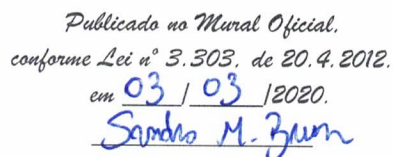 Publicado no Mural Oficial,
conforme Lei nº 3.303, de 20.4.2012.
em 03 / 03 /2020.
Sandro M. Brum